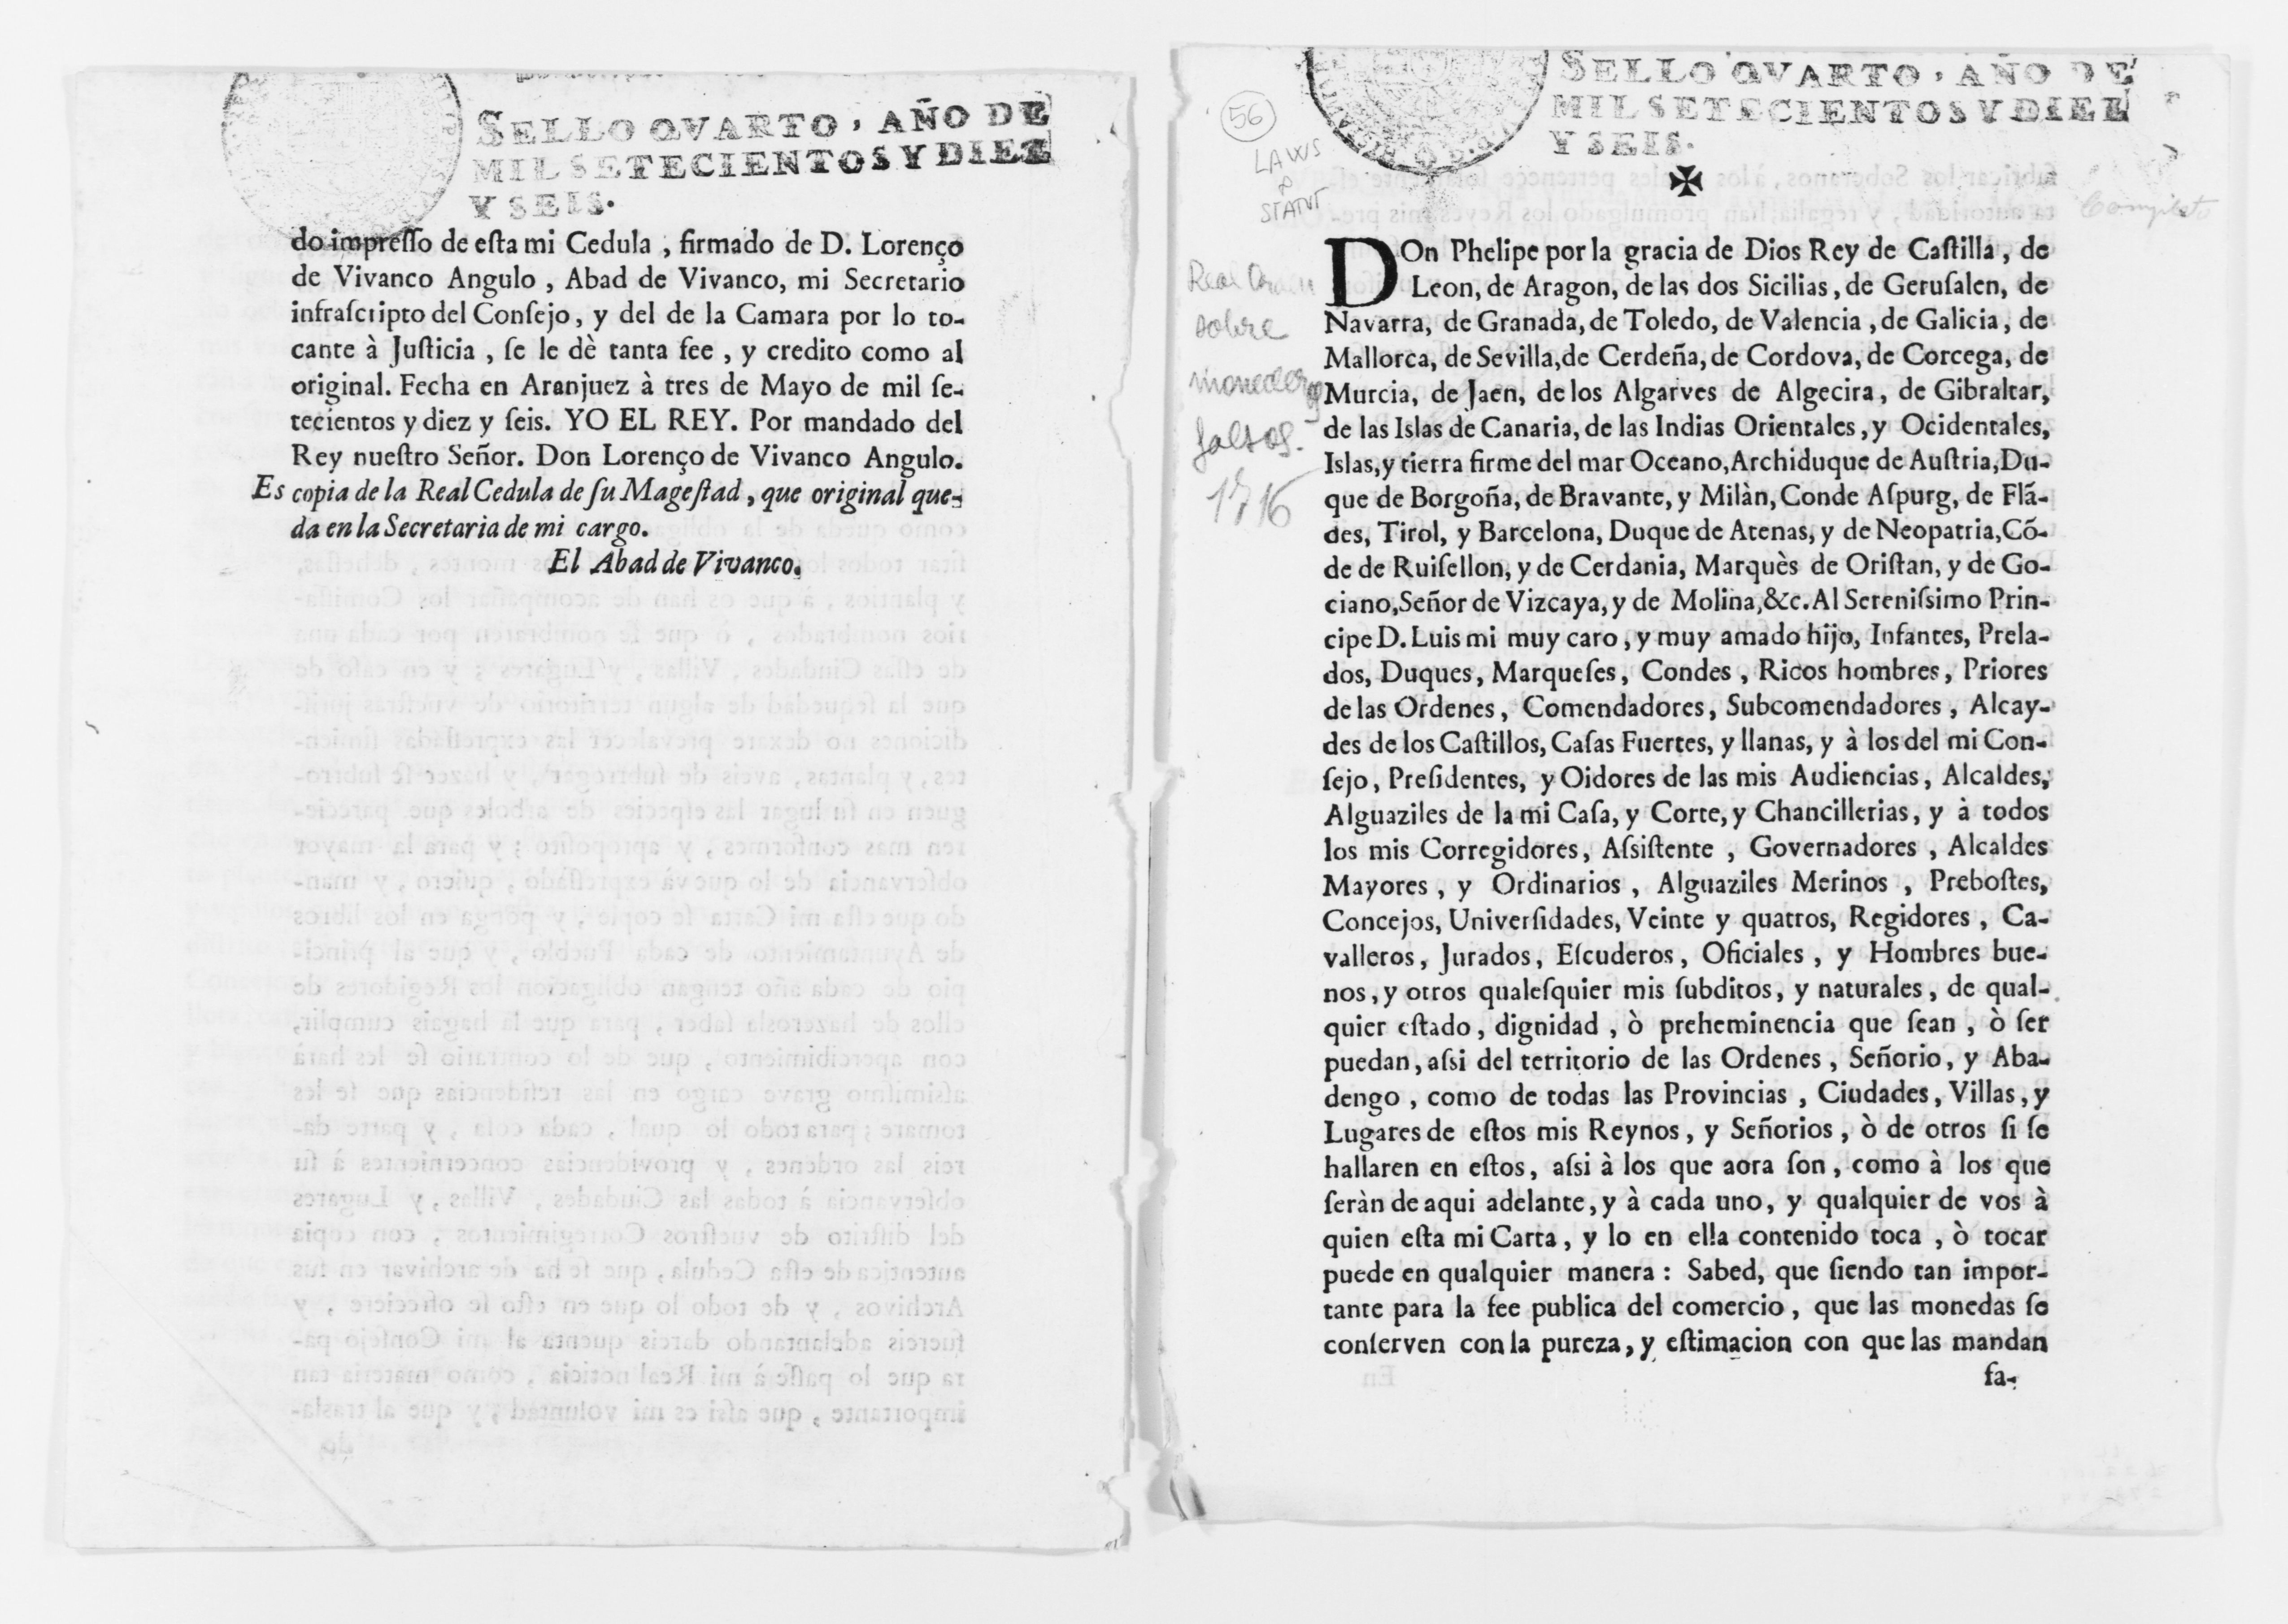 SELLO QVARTO, AÑO DE
MIL SETECIENTOS Y DIEZ
Y SEIS.
do impreſſo de eſta mi Cedula , firmado de D. Lorenço
de Vivanco Angulo , Abad de Vivanco, mi Secretario
infraſcripto del Conſejo, y del de la Camara por lo to-
cante à Juſticia , ſe le dè tanta fee , y credito como al
original. Fecha en Aranjuez à tres de Mayo de mil ſe-
tecientos y diez y ſeis. YO EL REY. Por mandado del
Rey nueſtro Señor. Don Lorenço de Vivanco Angulo.
Es copia de la Real Cedula de ſu Mageſtad, que original que-
da en la Secretaria de mi cargo.
El Abad de Vivanco.
SELLO QVARTO, AÑO DE
MIL SETECIENTOS Y DIEZ
Y SEIS.
56
LAWS
&
STATUT
Completo
Real Orden
sobre
monederos
falsos.
1716
DOn Phelipe por la gracia de Dios Rey de Caſtilla , de
Leon, de Aragon, de las dos Sicilias, de Geruſalen, de
Navarra, de Granada, de Toledo, de Valencia , de Galicia , de
Mallorca, de Sevilla,de Cerdeña, de Cordova, de Corcega, de
Murcia, de Jaen, de los Algarves de Algecira , de Gibraltar,
de las Islas de Canaria, de las Indias Orientales , y Ocidentales,
Islas,y tierra firme del mar Oceano,Archiduque de Auſtria,Du-
que de Borgoña, de Bravante, y Milàn, Conde Aſpurg, de Flã-
des, Tirol, y Barcelona, Duque de Atenas, y de Neopatria,Cõ-
de de Ruiſellon, y de Cerdania, Marquès de Oriſtan, y de Go-
ciano,Señor de Vizcaya, y de Molina,&c.Al Sereniſsimo Prin-
cipe D. Luis mi muy caro , y muy amado hijo, Infantes, Prela-
dos, Duques, Marqueſes, Condes , Ricos hombres, Priores
de las Ordenes , Comendadores, Subcomendadores , Alcay-
des de los Caſtillos, Caſas Fuertes, y llanas, y à los del mi Con-
ſejo, Preſidentes, y Oidores de las mis Audiencias, Alcaldes,
Alguaziles de la mi Caſa, y Corte, y Chancillerias, y à todos
los mis Corregidores, Aſsiſtente , Governadores , Alcaldes
Mayores , y Ordinarios , Alguaziles Merinos , Preboſtes,
Concejos, Univerſidades, Veinte y quatros, Regidores , Ca-
valleros, Jurados, Eſcuderos, Oficiales , y Hombres bue-
nos, y otros qualeſquier mis ſubditos, y naturales , de qual-
quier eſtado, dignidad , ò preheminencia que ſean , ò ſer
puedan, aſsi del territorio de las Ordenes, Señorio, y Aba-
dengo , como de todas las Provincias , Ciudades, Villas, y
Lugares de eſtos mis Reynos, y Señorios, ò de otros ſi ſe
hallaren en eſtos, aſsi à los que aora ſon, como à los que
ſeràn de aqui adelante, y à cada uno, y qualquier de vos à
quien eſta mi Carta, y lo en ella contenido toca , ò tocar
puede en qualquier manera : Sabed, que ſiendo tan impor-
tante para la fee publica del comercio, que las monedas ſe
conſerven con la pureza, y eſtimacion con que las mandan
fa-